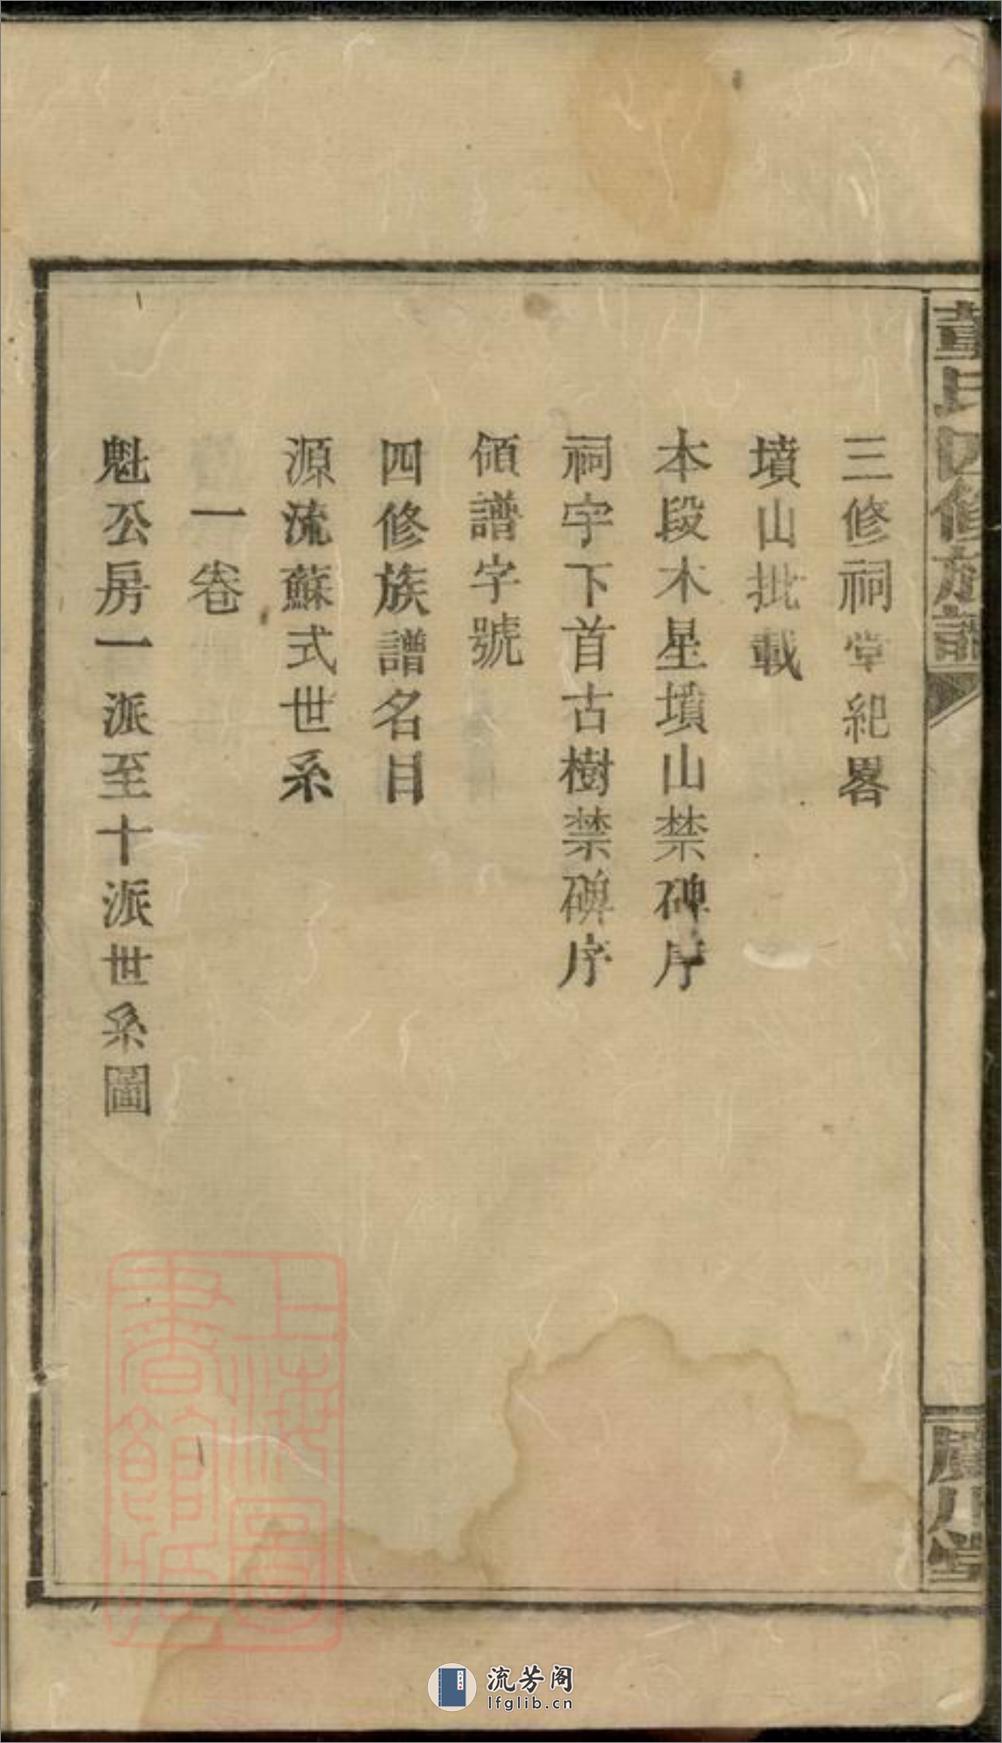 董氏四修族譜
廣川堂
三修祠堂紀畧
墳山批載
本段木星墳山禁碑序
祠宇下首古樹禁碑序
領譜字號
四修族譜名目
源流蘇式世系
一卷
魁公房一派至十派世系圖
上海圖
書館藏
流芳阁
lfglib.cn